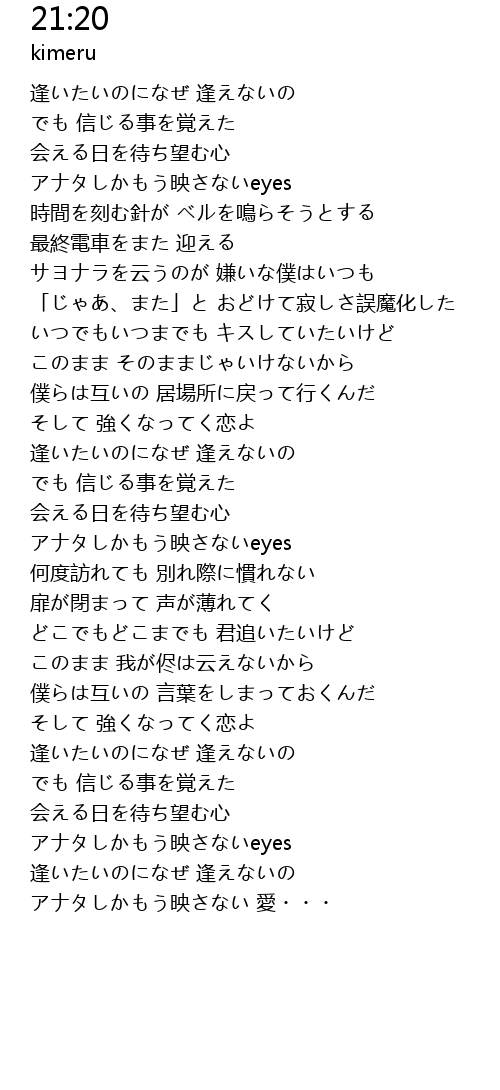 21:20
kimeru
逢いたいのになぜ 逢えないの
でも 信じる事を覚えた
会える日を待ち望む心
アナタしかもう映さないeyes
時間を刻む針が ベルを鳴らそうとする
最終電車をまた 迎える
サヨナラを云うのが 嫌いな僕はいつも
「じゃあ、また」と おどけて寂しさ誤魔化した
いつでもいつまでも キスしていたいけど
このまま そのままじゃいけないから
僕らは互いの 居場所に戻って行くんだ
そして 強くなってく恋よ
逢いたいのになぜ 逢えないの
でも 信じる事を覚えた
会える日を待ち望む心
アナタしかもう映さないeyes
何度訪れても 別れ際に慣れない
扉が閉まって 声が薄れてく
どこでもどこまでも 君追いたいけど
このまま 我が侭は云えないから
僕らは互いの 言葉をしまっておくんだ
そして 強くなってく恋よ
逢いたいのになぜ 逢えないの
でも 信じる事を覚えた
会える日を待ち望む心
アナタしかもう映さないeyes
逢いたいのになぜ 逢えないの
アナタしかもう映さない 愛・・・